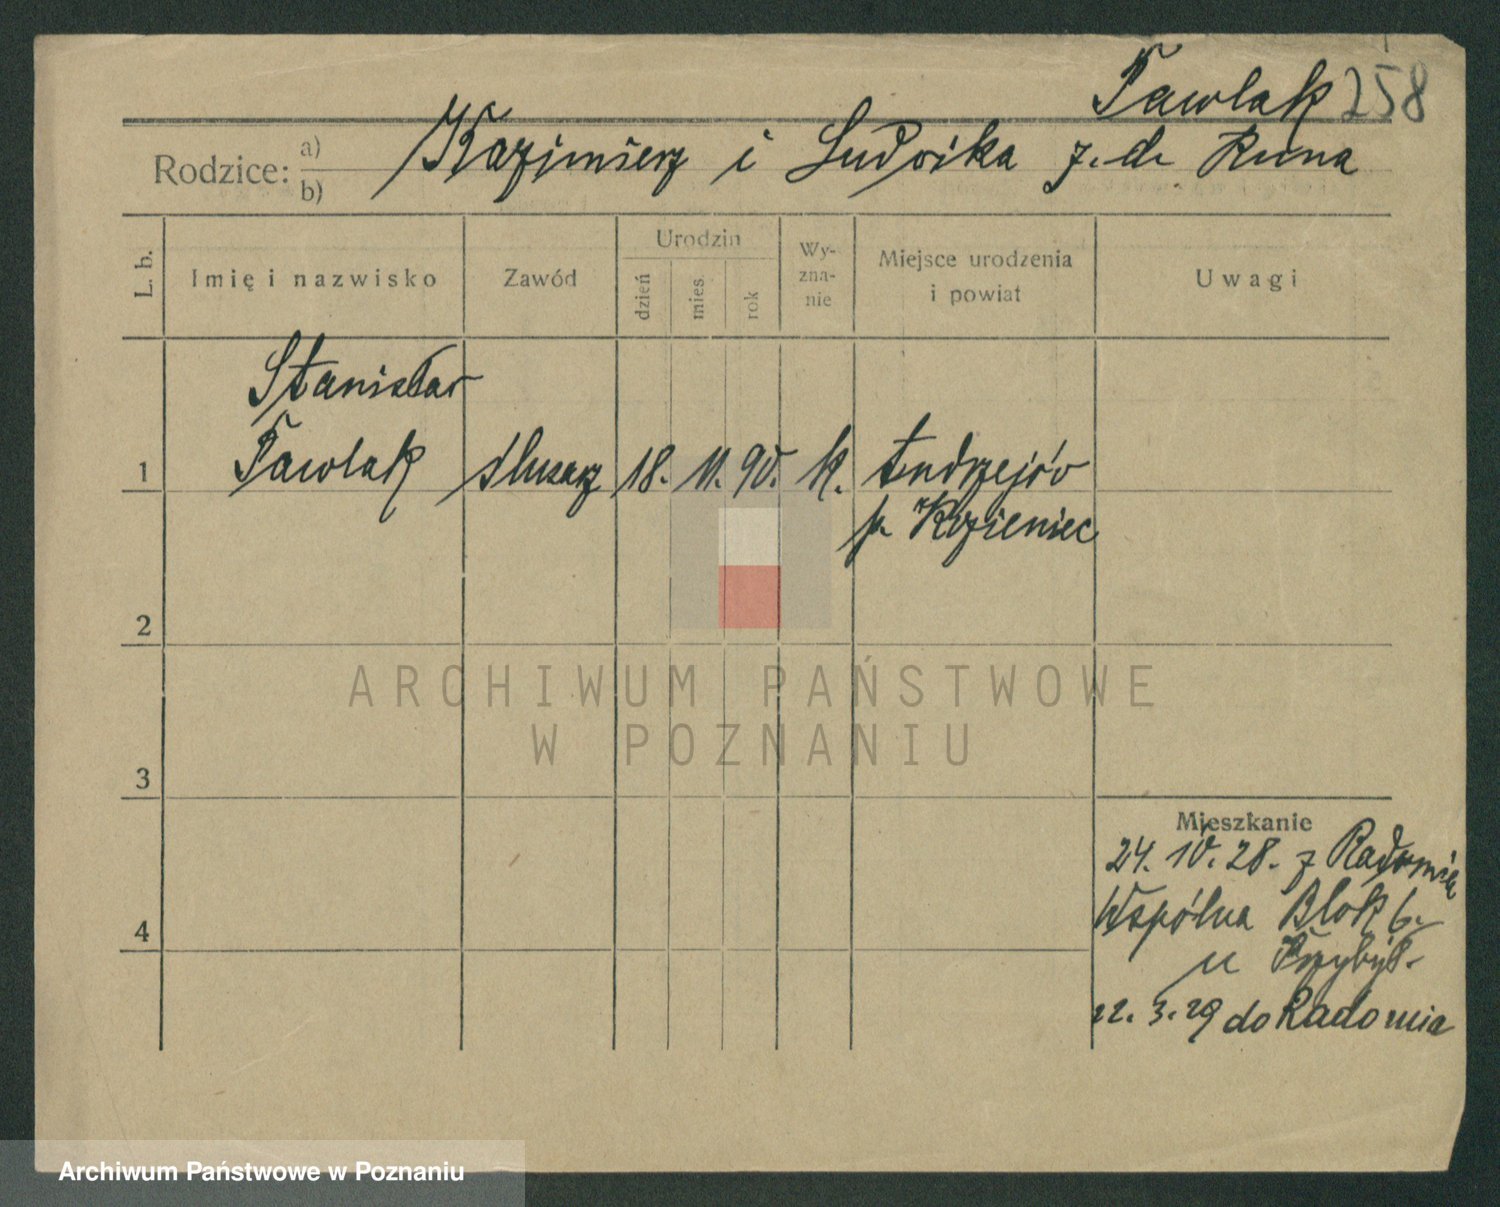 Pawlak 258
Rodzice: a) b) Kazimierz i Ludwika z. d. Kuna
L. b. Imię i nazwisko Zawód Urodzin dzień mies. rok Wyznanie Miejsce urodzenia i powiat Uwagi
Stanisław
1 Pawlak ślusarz 18. 11. 90. k. Andrzejów
p. Kozienice
2
3
Mieszkanie
24. IV. 28. z Radomia
4 Wspólna Blok 6.
u Przybył.
22. 3. 29 do Radomia
ARCHIWUM PAŃSTWOWE
W POZNANIU
Archiwum Państwowe w Poznaniu